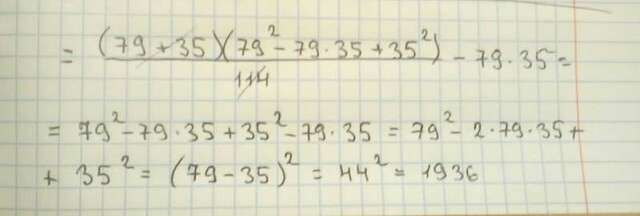 = (79 + 35)(79² - 79·35 + 35²) / 114 - 79·35 =
= 79² - 79·35 + 35² - 79·35 = 79² - 2·79·35 +
+ 35² = (79 - 35)² = 44² = 1936